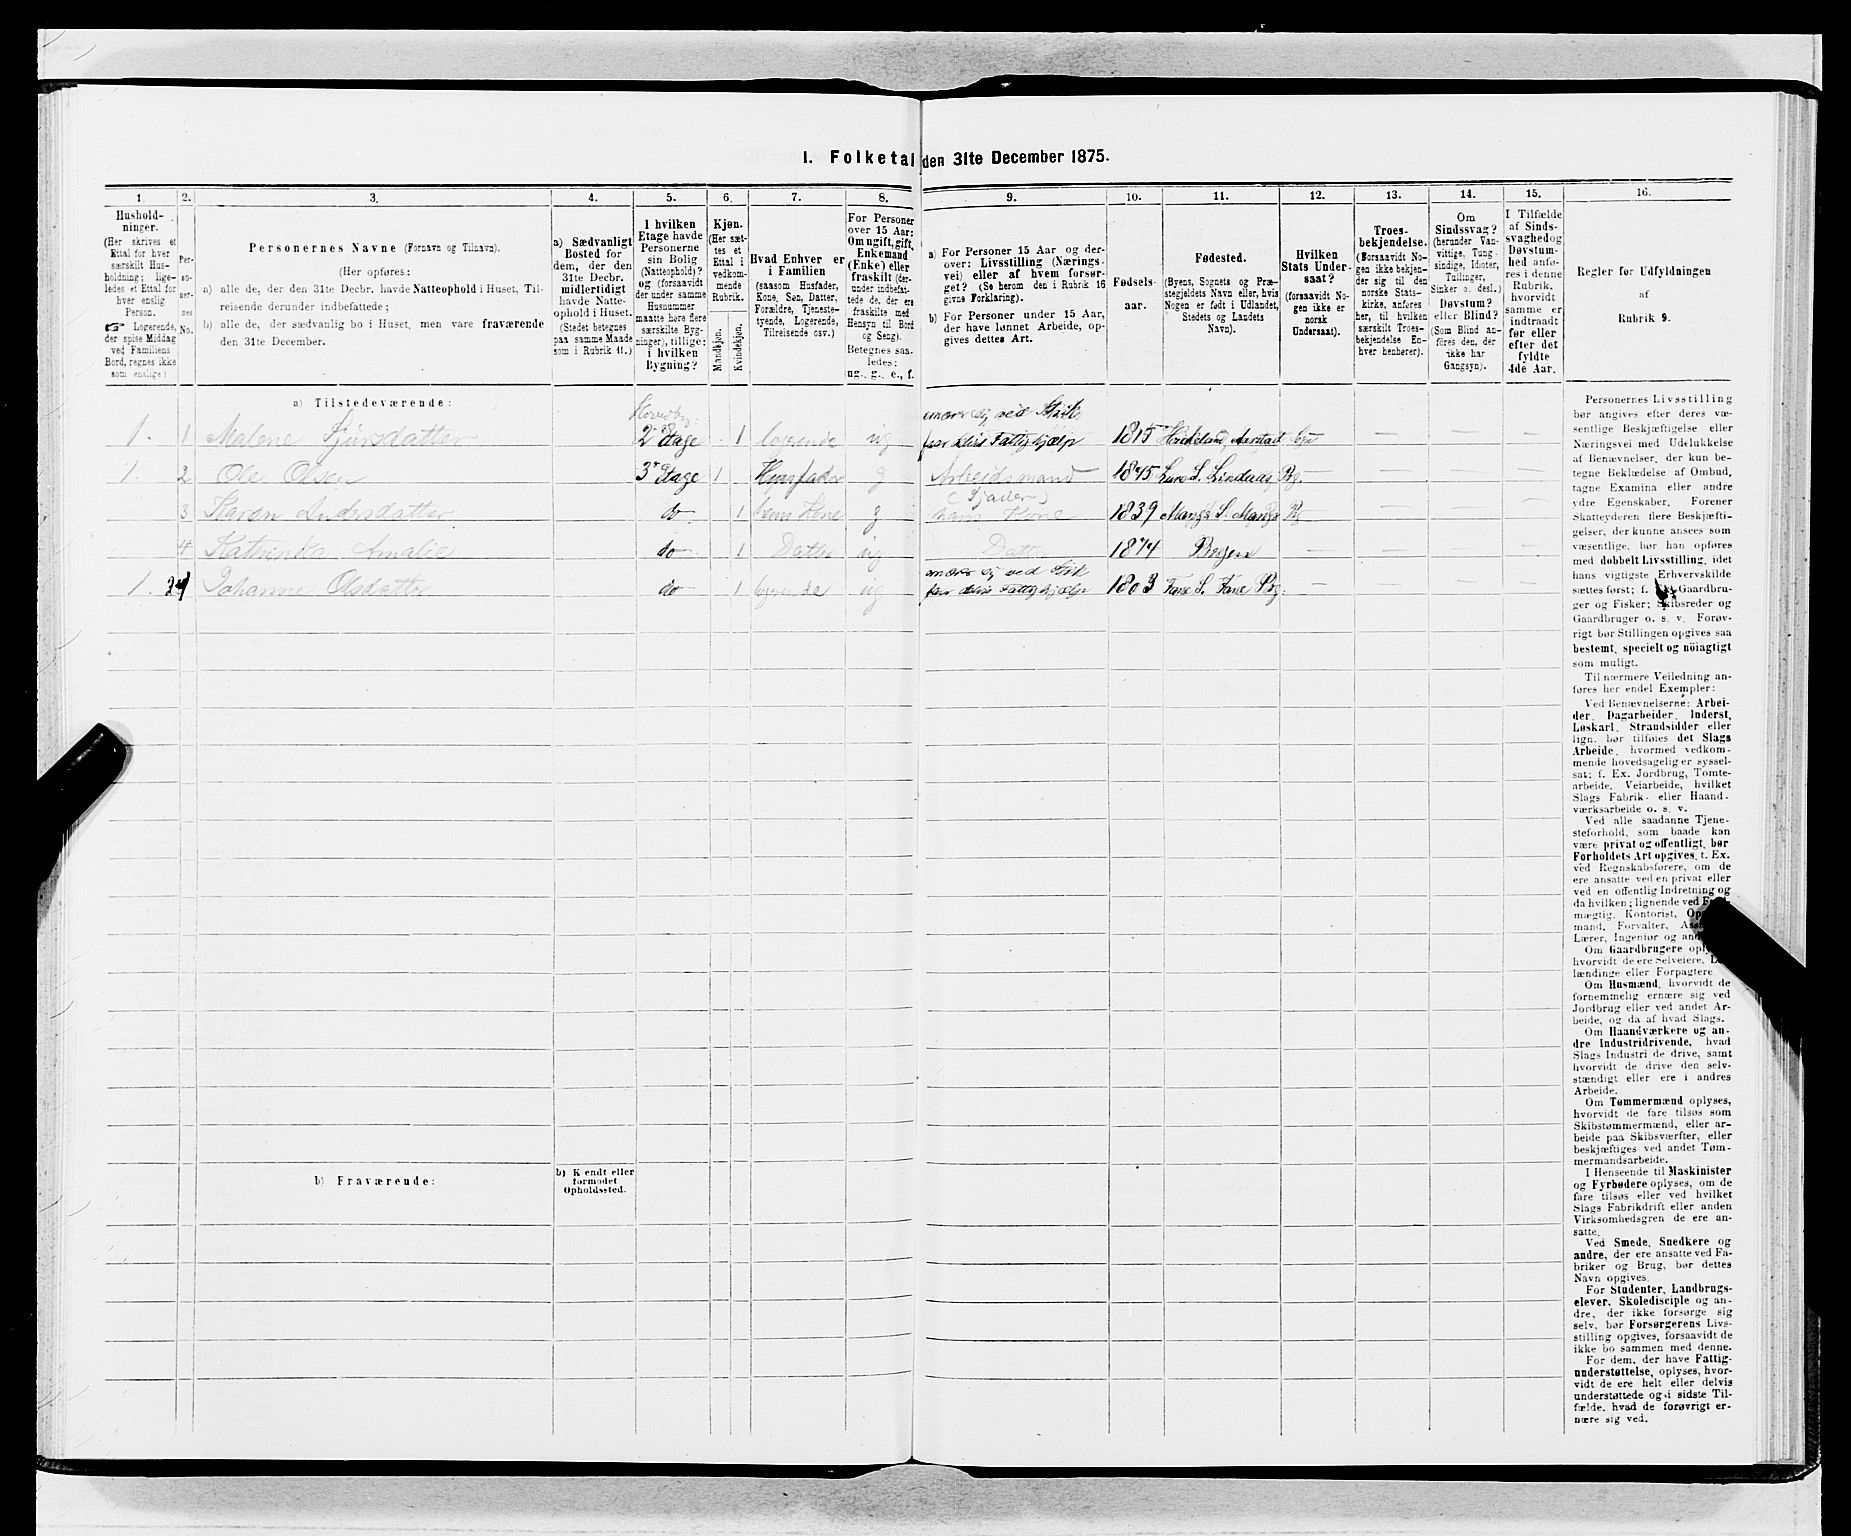 1. Folketal den 31te December 1875.
1. 2. 3. 4. 5. 6. 7. 8. 9. 10. 11. 12. 13. 14. 15. 16.
Hushold-
ninger.
(Her skrives et
Ettal for hver
særskilt Hus-
holdning; lige-
ledes et Ettal for
hver enslig
Person.
Logerende,
der spise Middag
ved Familiens
Bord, regnes ikke
som enslige.)
Per-
so-
ner-
nes
No.
Personernes Navne (Fornavn og Tilnavn).
(Her opføres:
a) alle de, der den 31te Decbr. havde Natteophold i Huset, Til-
reisende derunder indbefattede;
b) alle de, der sædvanlig bo i Huset, men vare fraværende
den 31te December.
a) Sædvanligt
Bosted for
dem, der den
31te Decbr.
midlertidigt
havde Natte-
ophold i Huset.
(Stedet betegnes
paa samme Maade
som i Rubrik 11.)
I hvilken
Etage havde
Personerne
sin Bolig
(Natteophold)?
og (forsaavidt
der under samme
Husnummer
maatte høre flere
særskilte Byg-
ninger), tillige:
i hvilken
Bygning?
Kjøn.
(Her sæt-
tes et
Ettal i
vedkom-
mende
Rubrik.
Mandkjøn.
Kvindekjøn.
Hvad Enhver er
i Familien
(saasom Husfader,
Kone, Søn, Datter,
Forældre, Tjeneste-
tyende, Logerende,
Tilreisende osv.)
For Personer
over 15 Aar:
Om ugift, gift,
Enkemand
(Enke) eller
fraskilt (der-
under indbefat-
tede de, der ere
fraskilte med
Hensyn til Bord
og Seng).
Betegnes saa-
ledes:
ug., g., e., f.
a) For Personer 15 Aar og der-
over: Livsstilling (Nærings-
vei) eller af hvem forsør-
get? (Se herom den i Rubrik 16
givne Forklaring).
b) For Personer under 15 Aar,
der have lønnet Arbeide, op-
gives dettes Art.
Fødsels-
aar.
Fødested.
(Byens, Sognets og Præ-
stegjeldets Navn eller, hvis
Nogen er født i Udlandet,
Stedets og Landets
Navn).
Hvilken
Stats Under-
saat?
(forsaavidt No-
gen ikke er
norsk
Undersaat).
Troes-
bekjendelse.
(Forsaavidt No-
gen ikke bekjen-
der sig til den
norske Stats-
kirke, anføres
her, til hvilken
særskilt Troes-
bekjendelse En-
hver henhører).
Om
Sindssvag?
(herunder Van-
vittige, Tung-
sindige, Idioter,
Tullinger,
Sinker o. desl.)
Døvstum?
eller Blind?
(Som Blind an-
føres den, der
ikke har
Gangsyn).
I Tilfælde
af Sinds-
svaghed og
Døvstum-
hed anfø-
res i denne
Rubrik,
hvorvidt
samme er
indtraadt
før eller
efter det
fyldte
4de Aar.
Regler før Udfyldningen
af
Rubrik 9.
a) Tilstedeværende:
1. 1 Malene Sjursdatter 2 Etage 1 logerende ug ved Strik har delvis Fattighjælp 1815
1. 2 Ole Olsen 3 Etage 1 Huusfader g Arbeidsmand 1845 Lindaas Pg.
3 Karen Andersdatter do 1 hans Kone g hans Kone 1839 Manger S. Manger Pg
4 Katrinka Amalie do 1 Datter ug Datter 1874 Bergen
1. Johanne Olsdatter do 1 logerende ug ved Strik Fattighjælp 1803 Fane S. Fane Pg.
b) Fraværende:
b) Kendt eller
formodet
Opholdssted.
Personernes Livsstilling
bør angives efter deres væ-
sentlige Beskjæftigelse eller
Næringsvei med Udelukkelse
af Benævnelser, der kun be-
tegne Beklædelse af Ombud,
tagne Examina eller andre
ydre Egenskaber. Forener
Skatteyderen flere Beskjæfti-
gelser, der kunne ansees som
væsentlige, bør han opføres
med dobbelt Livsstilling, idet
hans vigtigste Erhvervskilde
sættes først; f. Gaardbru-
ger og Fisker; Skibsreder og
Gaardbruger o. s. v. Forøv-
rigt bør Stillingen opgives saa
bestemt, specielt og nöiagtigt
som muligt.
Til nærmere Veiledning an-
føres her endel Exempler:
Ved Benævnelserne: Arbei-
der, Dagarbeider, Inderst,
Løskarl, Strandsidder eller
lign. bør tilføies det Slags
Arbeide, hvormed vedkom-
mende hovedsagelig er syssel-
sat; f. Ex. Jordbrug, Tomte-
arbeide, Veiarbeide, hvilket
Slags Fabrik- eller Haand-
værksarbeide o. s. v.
Ved alle saadanne Tjene-
steforhold, som baade kan
være privat og offentligt, bør
Forholdets Art opgives, t. Ex.
ved Regnskabsførere, om de
ere ansatte ved en privat eller
ved en offentlig Indretning og
da hvilken; lignende ved
mægtig, Kontorist,
mand, Forvalter,
Lærer, Ingeniør og
Om Gaardbrugere
hvorvidt de ere Selveiere,
lændinge eller Forpagtere
Om Husmænd, hvorvidt de
fornemmelig ernære sig ved
Jordbrug eller ved andet Ar-
beide, og da af hvad Slags.
Om Haandværkere og an-
dre Industridrivende, hvad
Slags Industri de drive, samt
hvorvidt de drive den selv-
stændigt eller ere i andres
Arbeide.
Om Tømmermænd oplyses,
hvorvidt de fare tilsøs som
Skibstømmermænd, eller ar-
beide paa Skibsværfter, eller
beskjæftiges ved andet Tøm-
mermandsarbeide.
I Henseende til Maskinister
og Fyrbødere oplyses, om de
fare tilsøs eller ved hvilket
Slags Fabrikdrift eller anden
Virksomhedsgren de ere an-
satte.
Ved Smede, Snedkere og
andre, der ere ansatte ved Fa-
briker og Brug, bør dettes
Navn opgives.
For Studenter, Landbrugs-
elever, Skoledisciple og an-
dre, der ikke forsørge sig
selv, bør Forsørgerens Livs-
stilling opgives, forsaavidt de
ikke bo sammen med denne.
For dem, der have Fattig-
understøttelse, oplyses, hvor-
vidt de ere helt eller delvis
understøttede og i sidste Til-
fælde, hvad de forøvrigt er-
nære sig ved.